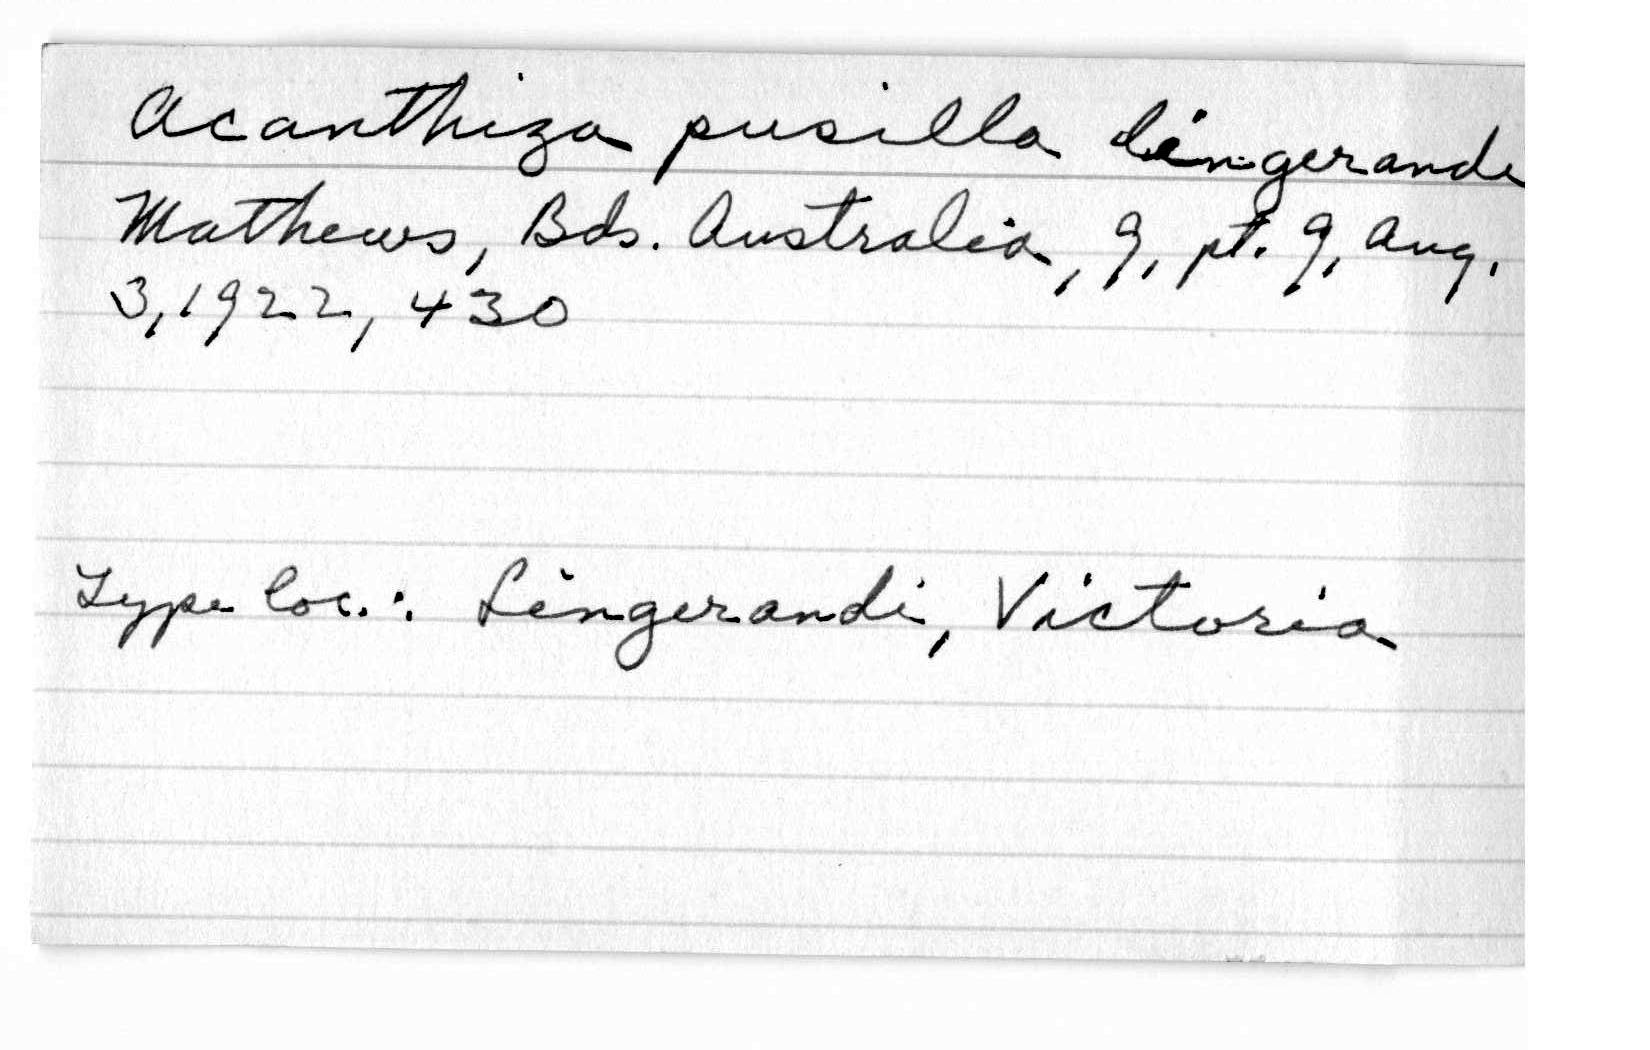 Acanthiza pusilla lingerande
Mathews, Bds. Australia, 9, pt. 9, Aug.
3, 1922, 430
Type loc.: Lingerandi, Victoria